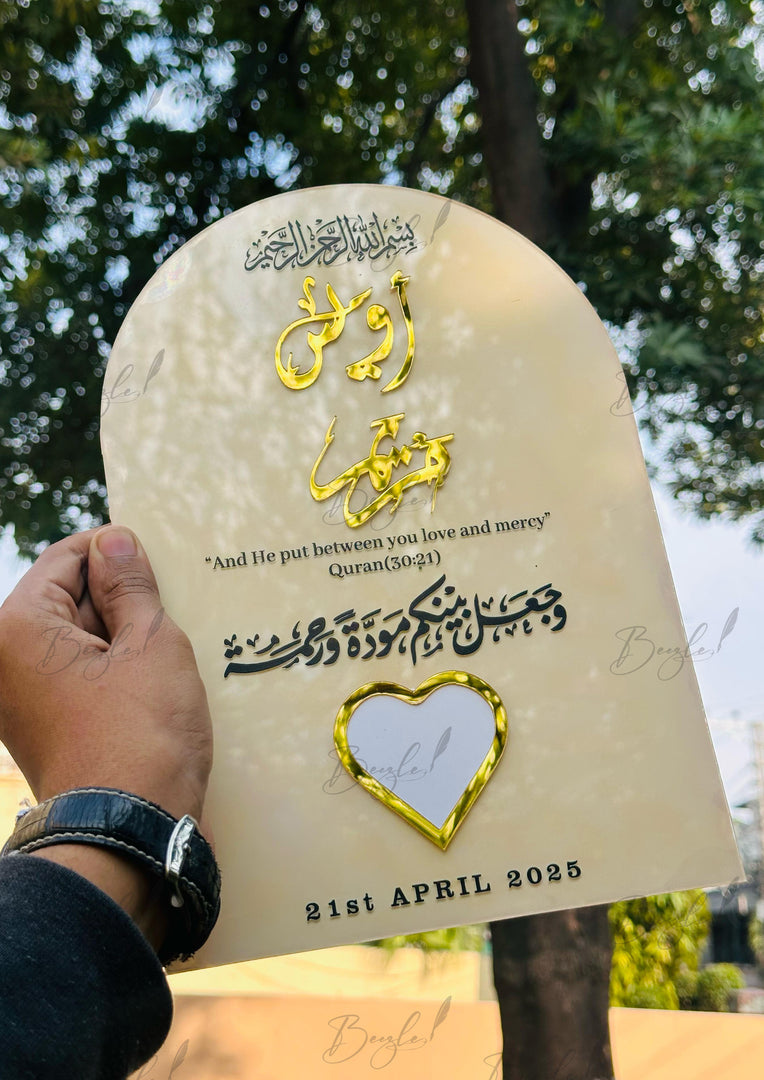 بِسْمِ اللَّهِ الرَّحْمَٰنِ الرَّحِيمِ
أویس
“And He put between you love and mercy”
Quran(30:21)
وَجَعَلَ بَيْنَكُم مَوَدَّةً وَرَحْمَةً
21st APRIL 2025
Beezle